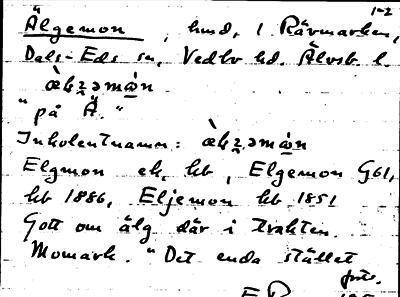 1-2
Älgemon, hmd, i Rävmarken,
Dals-Eds sn, Vedbo hd. Älvsb. l.
"på Ä."
Inkolentnamn:
Elgmon ek. kb, Elgemon G61,
kb 1886, Eljemon kb 1851
Gott om älg där i trakten.
Momark. "Det enda stället